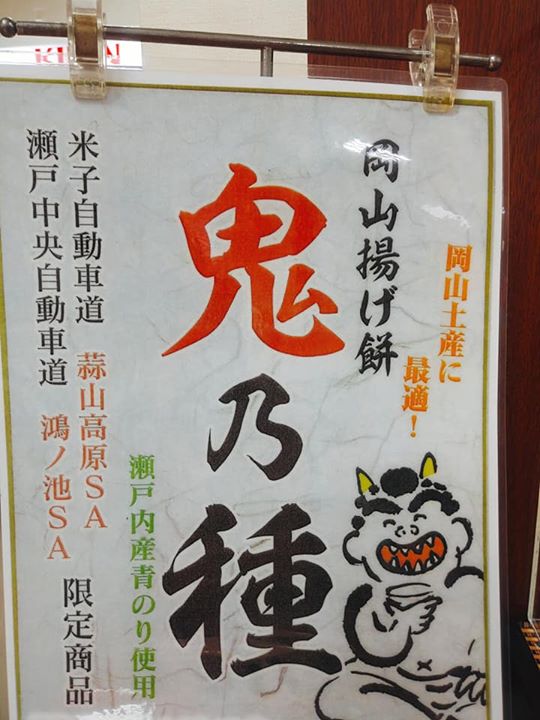 岡山土産に
最適！
岡山揚げ餅
鬼乃種
瀬戸内産青のり使用
米子自動車道 蒜山高原ＳＡ
瀬戸中央自動車道 鴻ノ池ＳＡ
限定商品